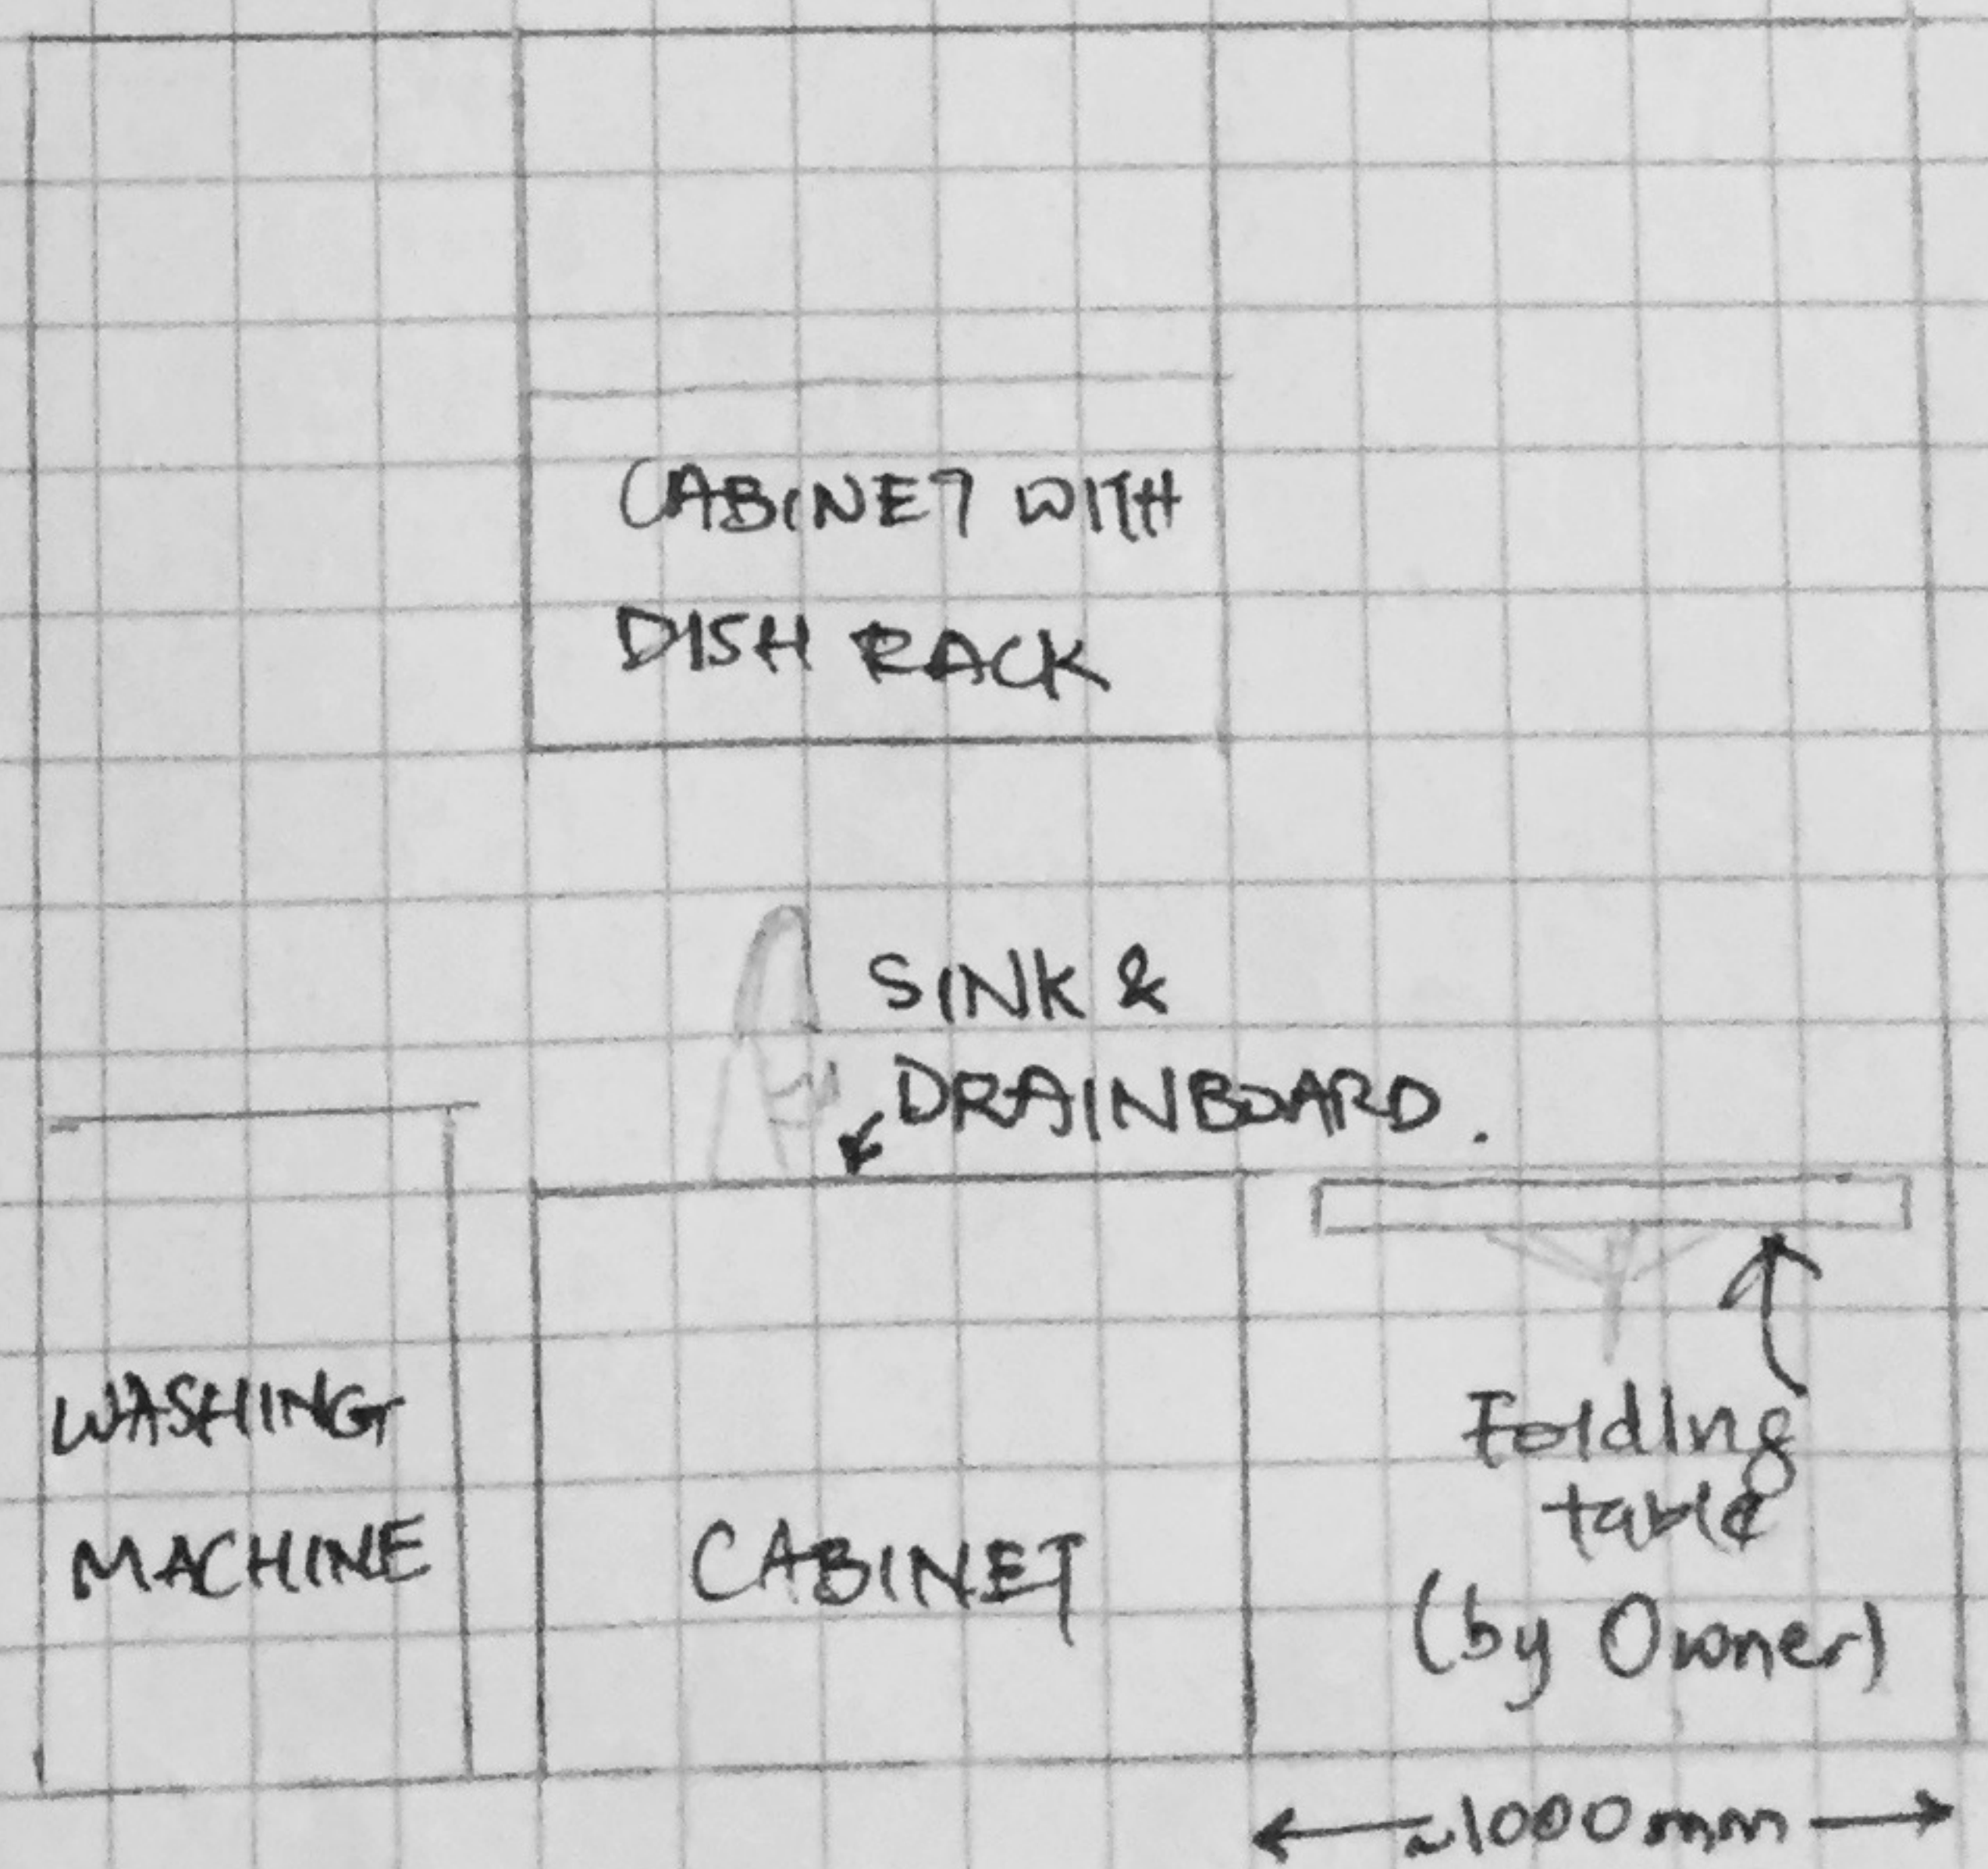 CABINET WITH
DISH RACK
SINK &
DRAINBOARD.
WASHING
MACHINE
CABINET
Folding
table
(by Owner)
~1000mm